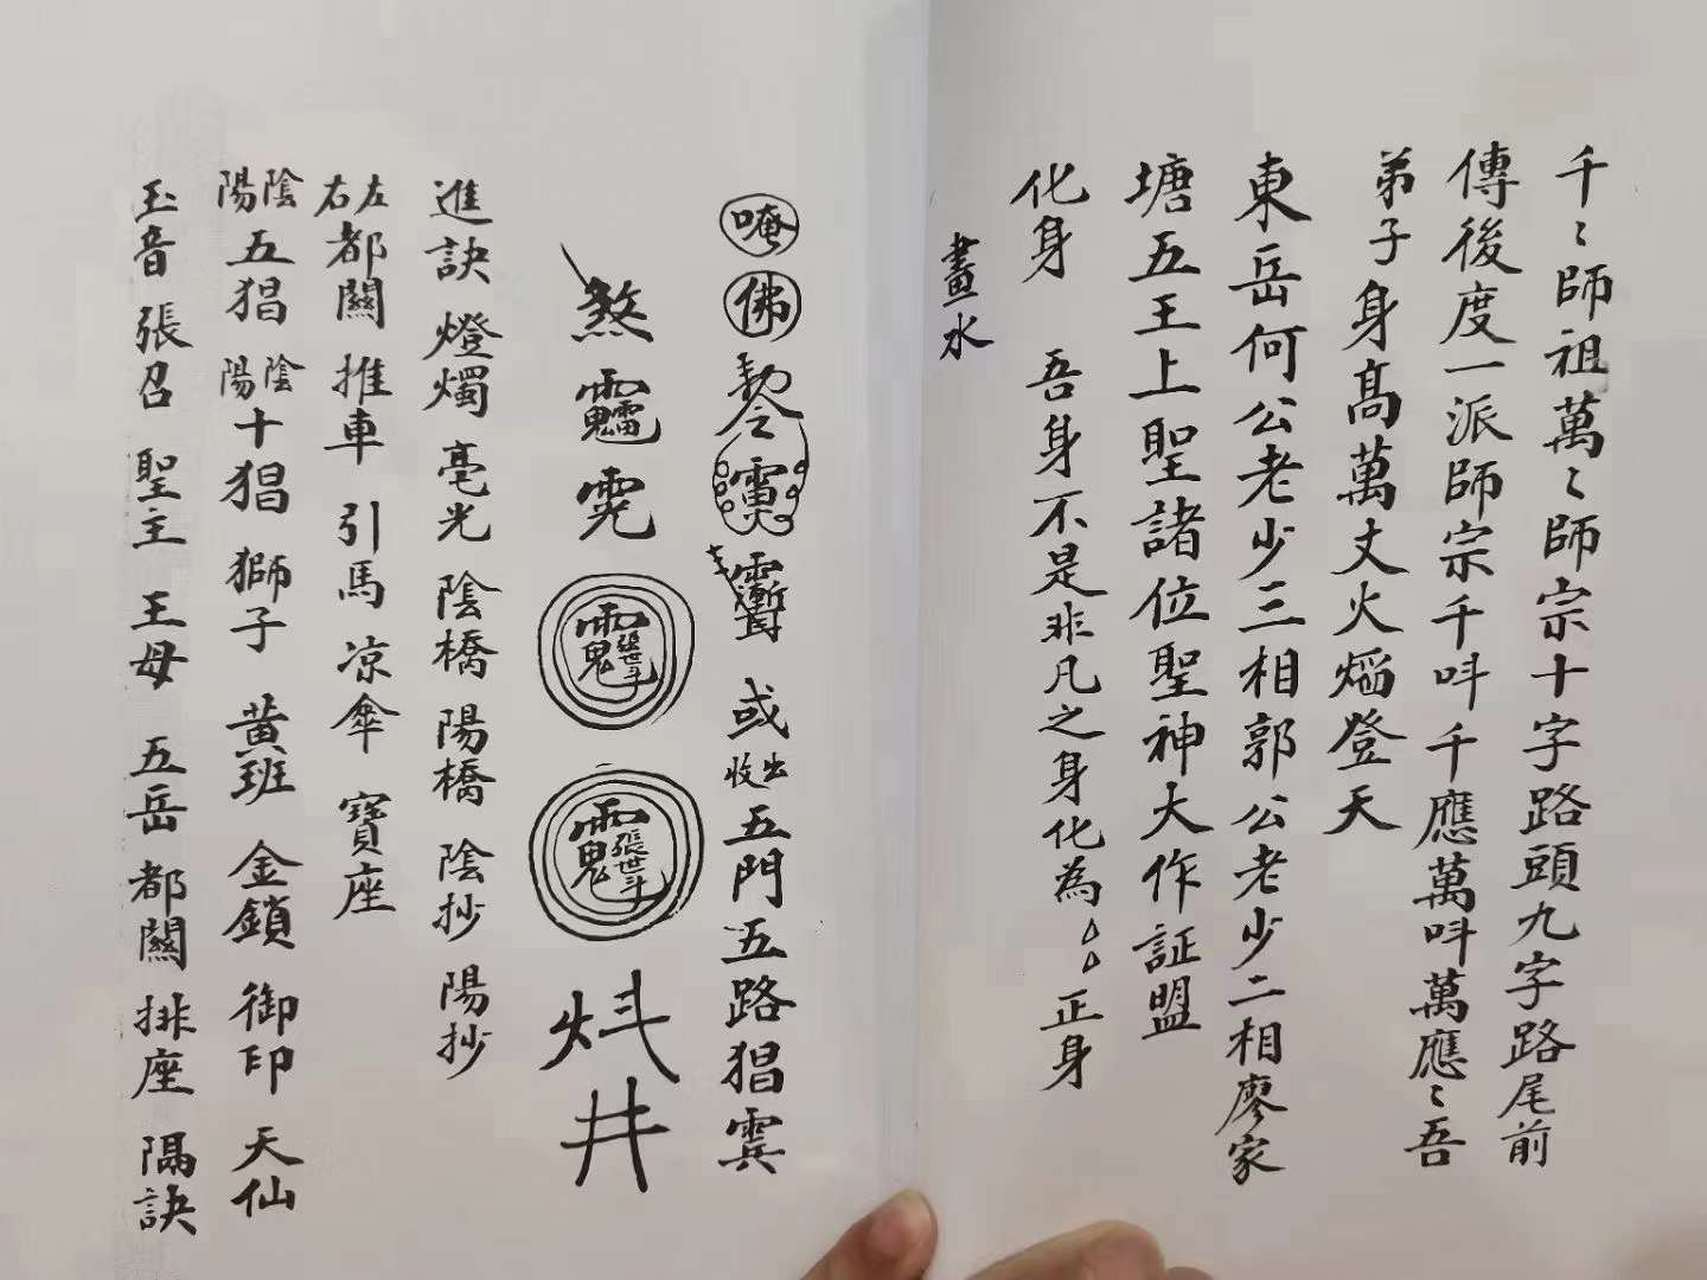 千〻師祖萬〻師宗十字路頭九字路尾前
傳後度一派師宗千呌千應萬呌萬應〻吾
弟子身高萬丈火焰登天
東岳何公老少三相郭公老少二相廖家
塘五王上聖諸位聖神大作証盟
化身 吾身不是非凡之身化為△△正身
畫水
唵佛 或收出五門五路猖
煞
進訣 燈燭 毫光 陰橋 陽橋 陰抄 陽抄
左右都關 推車 引馬 凉傘 寶座
陰陽五猖 陰陽十猖 獅子 黄班 金鎖 御印 天仙
玉音 張召 聖主 王母 五岳 都關 排座 隔訣